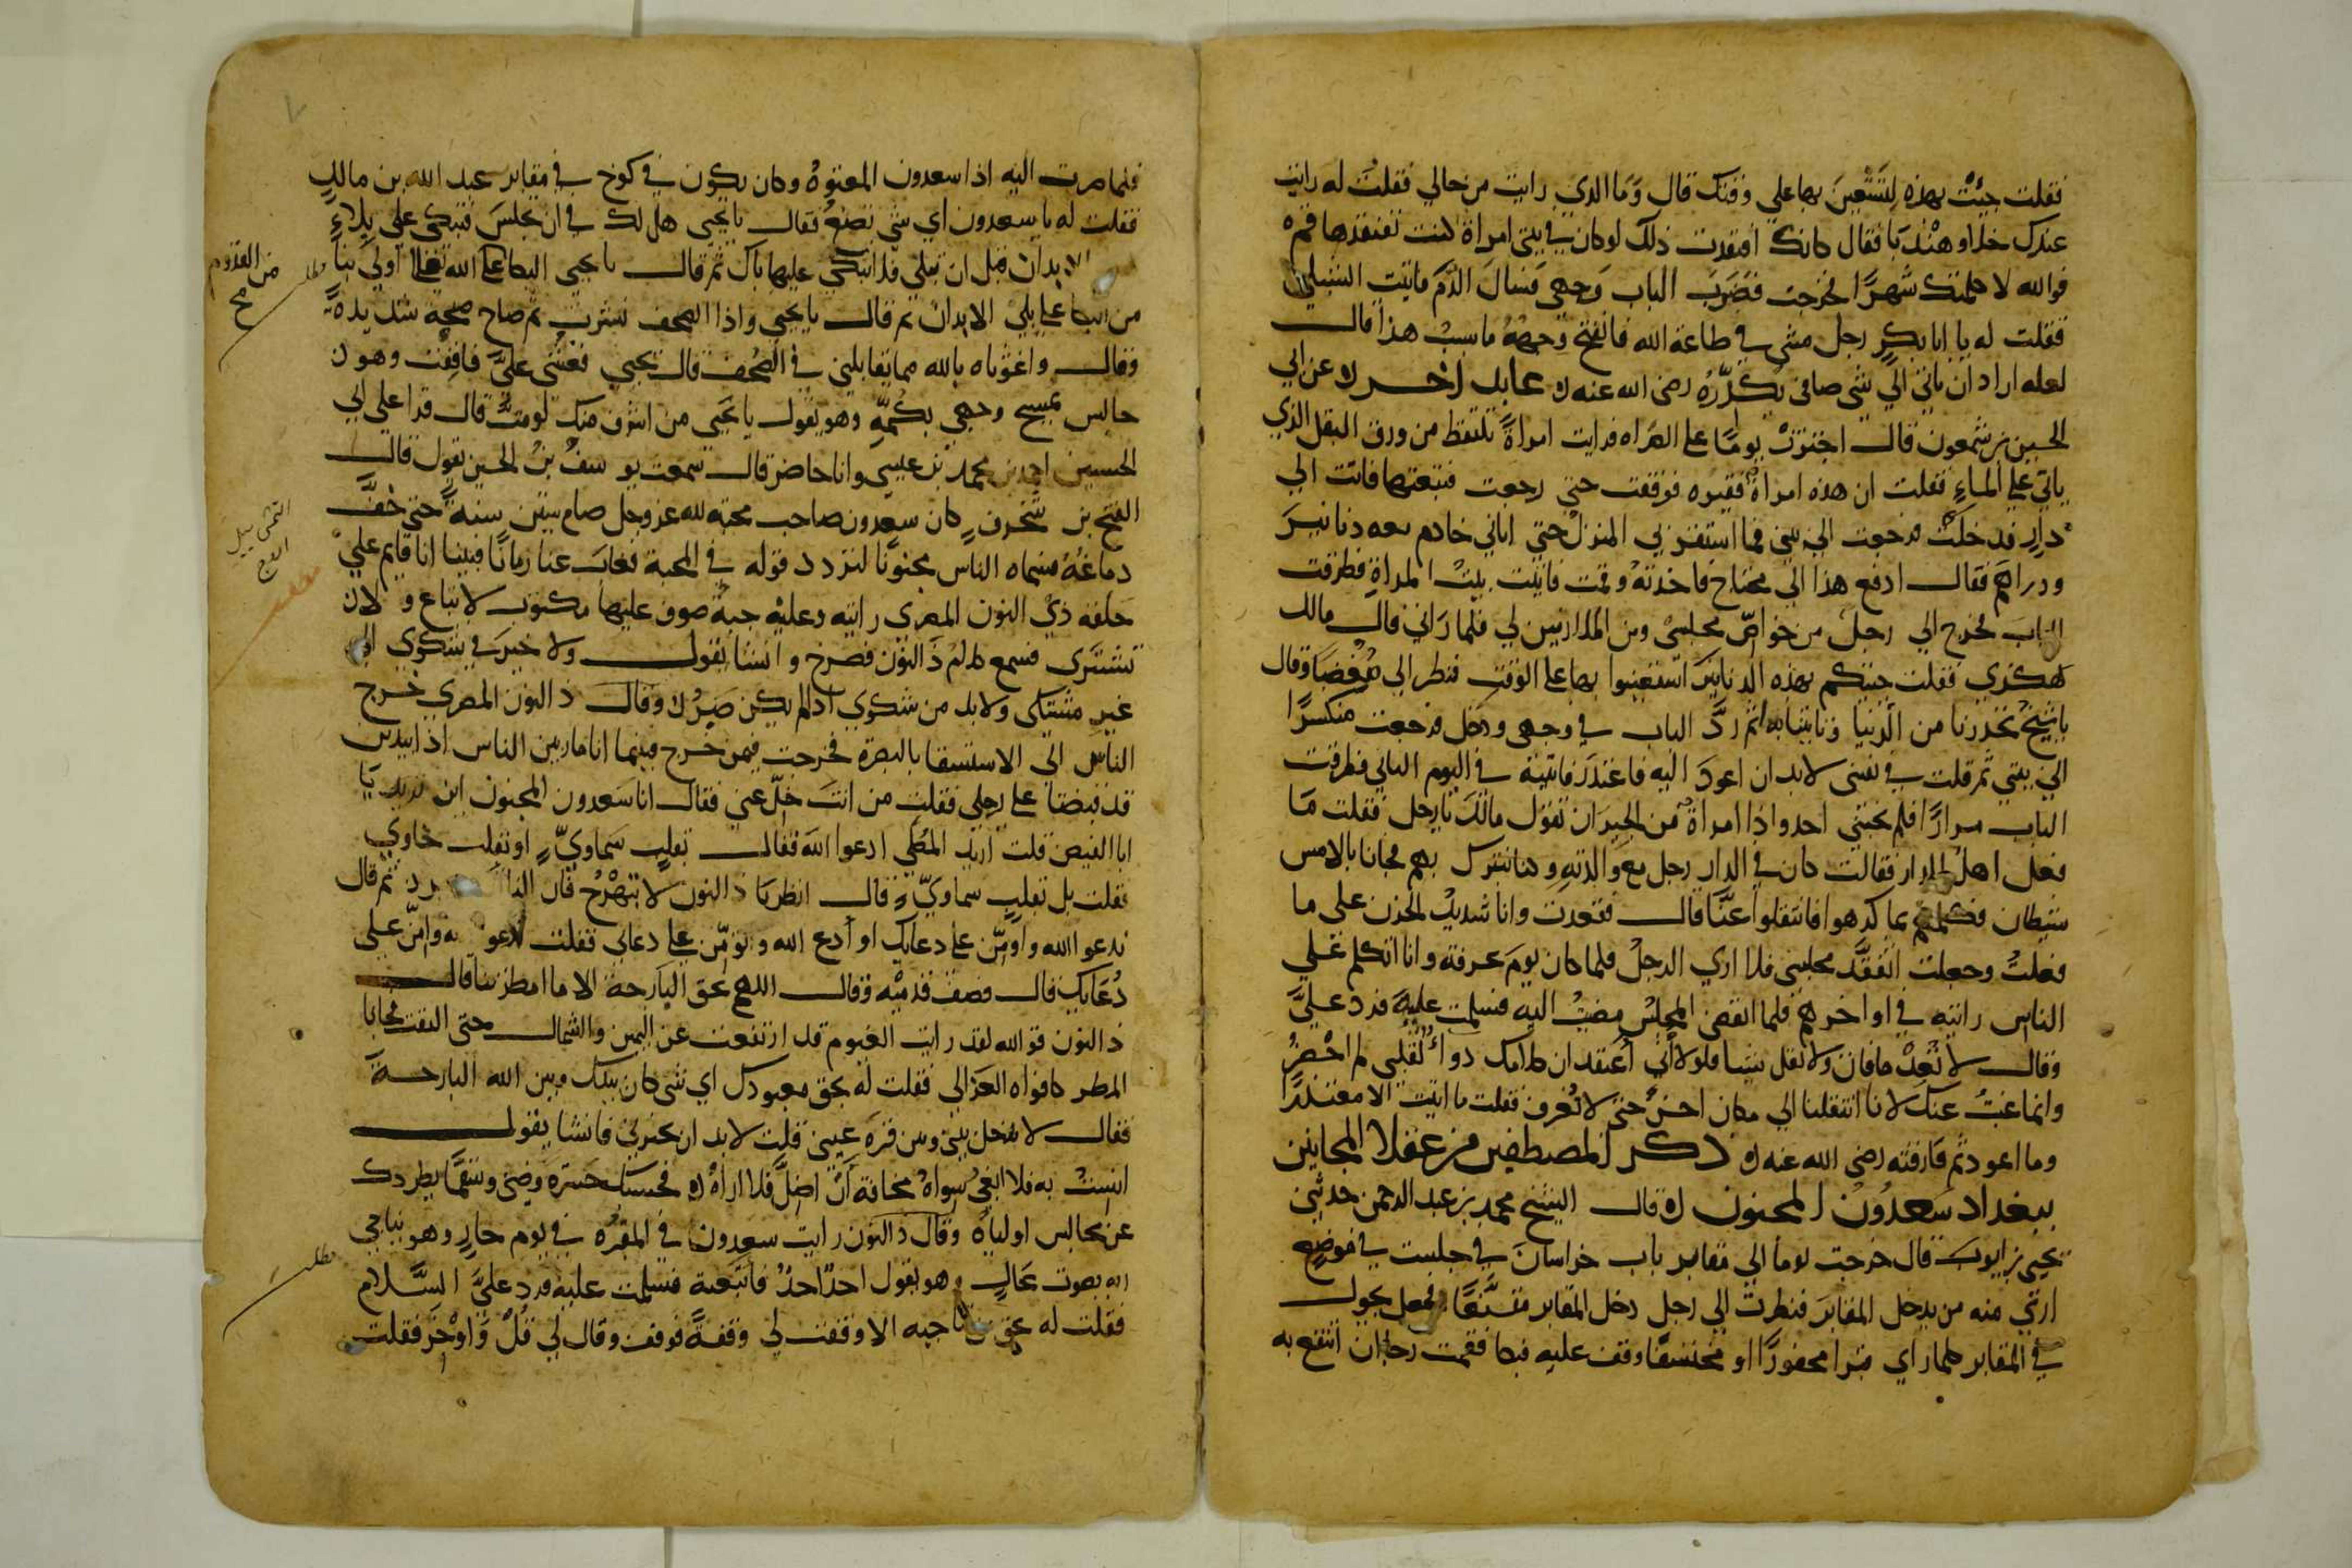 فقلت جيت بهذه لتستعين بها على وقتك قال وما الذي رايت من حالي فقلت له رايت
عندك خلا وهندبا فقال كانك افتقدت ذلك لو كان في بيتي امراة كنت تفتقدها قم
فوالله لا كلمتك شهرا فخرجت فضرب الباب وجهي فسال الدم فاتيت الشبلي
فقلت له يا ابا بكر رجل مشى في طاعة الله فانفتح وجهه ما سبب هذا قال
لعله اراد ان ياتي الي شي صافي يكدره رضى الله عنه عابد اخر عن ابي
الحسين بن شمعون قال اجتزت يوما على الصراه فرايت امراة تلتقط من ورق البقل الذي
ياتي على الماء فقلت ان هذه امراة فقيره فوقفت حتى رجعت فتبعتها فاتت الي
دار فدخلت فرجعت الي بيتي فما استقر بي المنزل حتى اتاني خادم معه دنانير
ودراهم فقال ادفع هذا الي محتاج فاخذته وقمت فاتيت بيت المراة فطرقت
الباب فخرج الي رجل من خواص مجلسي ومن الملازمين لي فلما راني قال مالك
هكذي فقلت جيتكم بهذه الدنانير استعينوا بها على الوقت فنظر الي مغضبا وقال
يا شيخ تحذرنا من الدنيا وتاتينا بها ثم رد الباب في وجهي ودخل فرجعت منكسرا
الي بيتي ثم قلت في نفسي لا بد ان اعود اليه فاعتذر فاتيته في اليوم الثاني فطرقت
الباب مرارا فلم يجبني احد واذا امراة من الجيران تقول مالك يا رجل فقلت ما
فعل اهل الدار فقالت كان في الدار رجل مع والدته وكنا نتبرك بهم فجانا بالامس
شيطان فكلمهم بما كرهوا فانتقلوا عنا قال فقعدت وانا شديد الحزن على ما
فعلت وجعلت اتفقد مجلسي فلا اري الرجل فلما كان يوم عرفة وانا اتكلم على
الناس رايته في اواخرهم فلما انقضى المجلس مضيت اليه فسلمت عليه فرد علي
وقال لا تعد ما فات ولا تقل شيا فلولا اني اعتقد ان كلامك دواء لقلبي لم احضر
وانما غبت عنك لانا انتقلنا الي مكان اخر حتى لا نعرف فقلت ما اتيت الا معتذرا
وما اعود ثم فارقته رضى الله عنه ذكر المصطفين من عقلا المجانين
ببغداد سعدون المجنون قال الشيخ محمد بن عبد الرحمن حدثني
يحيى بن ايوب قال خرجت يوما الي مقابر باب خراسان في جلست في موضع
اري منه من يدخل المقابر فنظرت الي رجل دخل المقابر متقنعا فجعل يجول
في المقابر كلما راى قبرا محفورا او منخسفا وقف عليه فبكا فقمت رجا ان انتفع به
فلما صرت اليه اذا سعدون المعتوه وكان يكون في كوخ في مقابر عبد الله بن مالك
فقلت له يا سعدون اي شي تصنع فقال يا يحيى هل لك في ان تجلس فتبكي على بلاء
الابدان قبل ان تبلى فلا تبكي عليها باك ثم قال يا يحيى البكا على الله تعالى اولي بنا
من البكا على بلي الابدان ثم قال يا يحيى واذا الصحف نشرت ثم صاح صيحة شديدة
وقال واغوثاه بالله مما يقابلني في الصحف قال يحيى فغشى علي فافقت وهو
جالس يمسح وجهي بكمه وهو يقول يا يحيى من اشرف منك لو مت قال قرا على ابي
الحسين احمد بن محمد بن عيسى وانا حاضر قال سمعت يوسف بن الحسين يقول قال
الفتح بن شخرف كان سعدون صاحب محبة لله عز وجل صام ستين سنة حتى خف
دماغه فسماه الناس مجنونا لتردد قوله في المحبة فغاب عنا زمانا فبينا انا قايم على
حلقه ذي النون المصري رايته وعليه جبة صوف عليها مكتوب لا تباع ولا
تشترى فسمع كلام ذا النون فصرخ وانشا يقول ولا خير في شكوي الي
غير مشتكى ولا بد من شكوى اذا لم يكن صبر وقال ذا النون المصري خرج
الناس الى الاستسقا بالبصرة فخرجت فيمن خرج فبينما انا مار بين الناس اذا بيدين
قد قبضتا على رجلي فقلت من انت خل عني فقال انا سعدون المجنون اين تريد يا
ابا الفيض قلت اريد المصلي ادعوا الله فقال بقلب سماوي او بقلب خاوي
فقلت بل بقلب سماوي قال انظر يا ذا النون لا تبهرج فان الناقد ثم قال
تدعوا الله واومن على دعايك او ادع الله وتؤمن على دعاي فقلت ادعو وامن على
دعايك قال فصف قدميه وقال اللهم بحق البارحة الا ما امطرتنا قال
ذا النون فوالله لقد رايت الغيوم قد ارتفعت عن اليمين والشمال حتى التقت فجانا
المطر كافواه العزالي فقلت له بحق معبودك اي شي كان بينك وبين الله البارحة
فقال لا تدخل بيني وبين قرة عيني قلت لا بد ان تخبرني فانشا يقول
انست به فلا ابغي سواه مخافة ان اضل فلا اراه فحسبك حسرة وضنى وسقما بطردك
عن مجالس اولياه وقال ذا النون رايت سعدون في المقبره في يوم حار وهو يناجي
ربه بصوت عال وهو يقول احد احد فاتبعته فسلمت عليه فرد على السلام
فقلت له بحق من تناجيه الا وقفت لي وقفة فوقف وقال لي قل واوجز فقلت
مطلب
مطلب